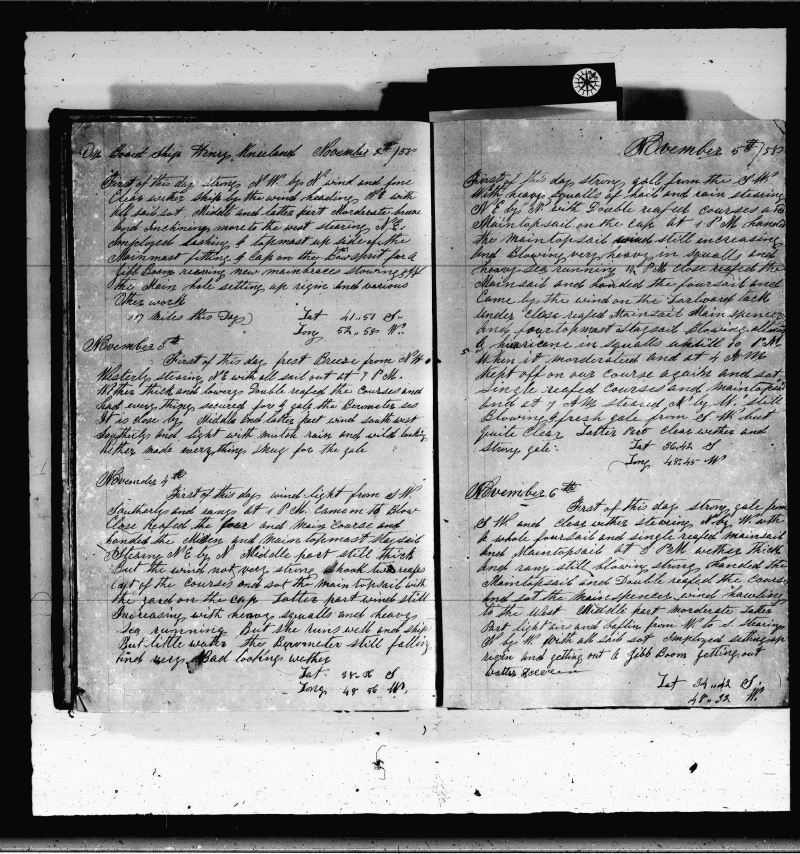 On Board Ship Henry Kneeland November 2th/58
First of this day strong N.W. by N wind and fine
Clear wether Ship by the wind heading N.E with
all sail sot Middle and latter part Morderate breese
and Inclining more to the west stearing N.E.
Imployed lashing a topmast up side of the
Mainmast fitting a Cap on the Bowsprit for a
Jibb Boom reeving new mainbraces stowing off
the Main hole setting up rigin and various
Other work
117 miles this Day) Lat 41..51 S.
Long 52..58 W.
November 3th
First of this day frest Breeze from N.W.
Westerly stearing N.E with all sail out at 7 P.M.
Wether thick and lowery Double reafed the Courses and
had every thing secured for a gale the Berometer ses
It is close by Middle and latter part wind south west
Southerly and light with mutch rain and wild looking
Wether made everything snug for the gale
November 4th
First of this day wind light from S.W.
Southerly and rany at 1 P.M. Came on to Blow
Close reafed the four and Main Course and
handed the Mizen and Main topmast staysail
Stearing N.E by N Middle part still thick
But the wind not very strong Shook two reafs
out of the courses and sot the main topsail with
the yard on the cap Latter part wind still
Increasing with heavy squalls and heavy
Sea running But she runs well and ships
But little water the Berometer still falling
and very Bad looking wether
Lat 38..06 S
Long 48 56 W.
November 5th/58
First of this day strong gale from the S.W.
With heavy squalls of hail and rain stearing
N.E by N with Double reafed courses and
Maintopsail on the cap at 1 P M handed
the maintopsail wind still increasing
and Blowing very heavy in squalls and
heavy sea running P.M close reafed the
Mainsail and handed the foursail and
Came by the wind on the Larboard tack
under Close reafed Mainsail Main spencer
and fourtopmast staysail Blowing
a huricane in squalls untill 10 P.M
When it morderated and at 4 A M
kept off on our course again and sot
single reafed Courses and maintopsail
and at 7 A M steared N by W. still
Blowing a fresh gale from S.W but
quite Clear Latter Part clear wether and
strong gale. Lat 36.42 S
Long 48.45 W
November 6th
First of this day strong gale from
S W and clear wether stearing N by W with
a whole foursail and single reafed mainsail
and Maintopsail at P M wether thick
and rany still blowing strong handed the
Maintopsail and Double reafed the Courses
and sot the Main spencer wind hawling
to the West Middle part morderate Latter
Part light airs and baflin from W. to S. Stearing
N by W with all sail sot Imployed setting up
rigin and getting out a Jibb Boom getting out
watter
Lat 34..42 S.
48..32 W.